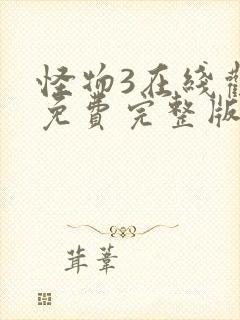 怪物3在线观
免费完整版
茸葦